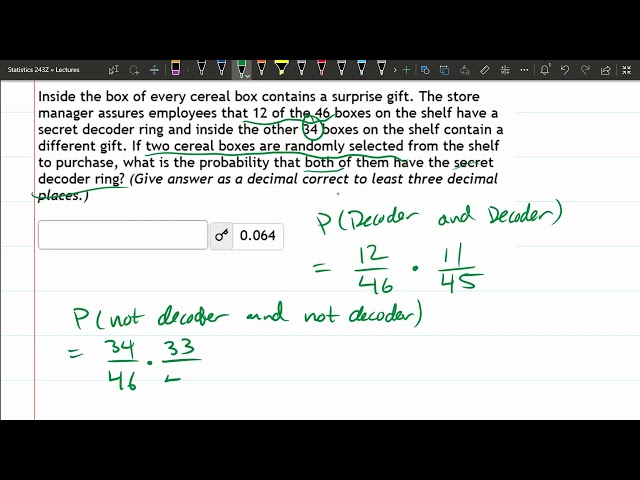 Statistics 243Z » Lectures
Inside the box of every cereal box contains a surprise gift. The store
manager assures employees that 12 of the 46 boxes on the shelf have a
secret decoder ring and inside the other 34 boxes on the shelf contain a
different gift. If two cereal boxes are randomly selected from the shelf
to purchase, what is the probability that both of them have the secret
decoder ring? (Give answer as a decimal correct to least three decimal
places.)
0.064
P(Decoder and Decoder)
= 12/46 · 11/45
P(not decoder and not decoder)
= 34/46 · 33/4